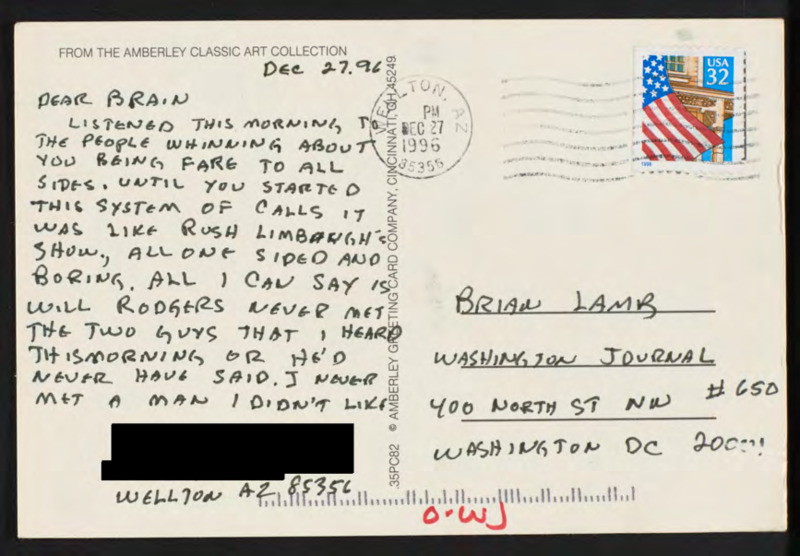 FROM THE AMBERLEY CLASSIC ART COLLECTION
DEC 27.96
DEAR BRAIN
LISTENED THIS MORNING TO
THE PEOPLE WHINNING ABOUT
YOU BEING FARE TO ALL
SIDES. UNTIL YOU STARTED
THIS SYSTEM OF CALLS IT
WAS LIKE RUSH LIMBAUGH'S
SHOW., ALL ONE SIDED AND
BORING. ALL I CAN SAY IS
WILL RODGERS NEVER MET
THE TWO GUYS THAT I HEARD
THISMORNING OR HE'D
NEVER HAVE SAID. I NEVER
MET A MAN I DIDN'T LIKE
WELLTON AZ 85356
.35PC82 © AMBERLEY GREETING CARD COMPANY, CINCINNATI, OH 45249
WELLTON, AZ
PM
DEC 27
1996
85356
USA
32
BRIAN LAMB
WASHINGTON JOURNAL
400 NORTH ST NW #650
WASHINGTON DC
O-WJ